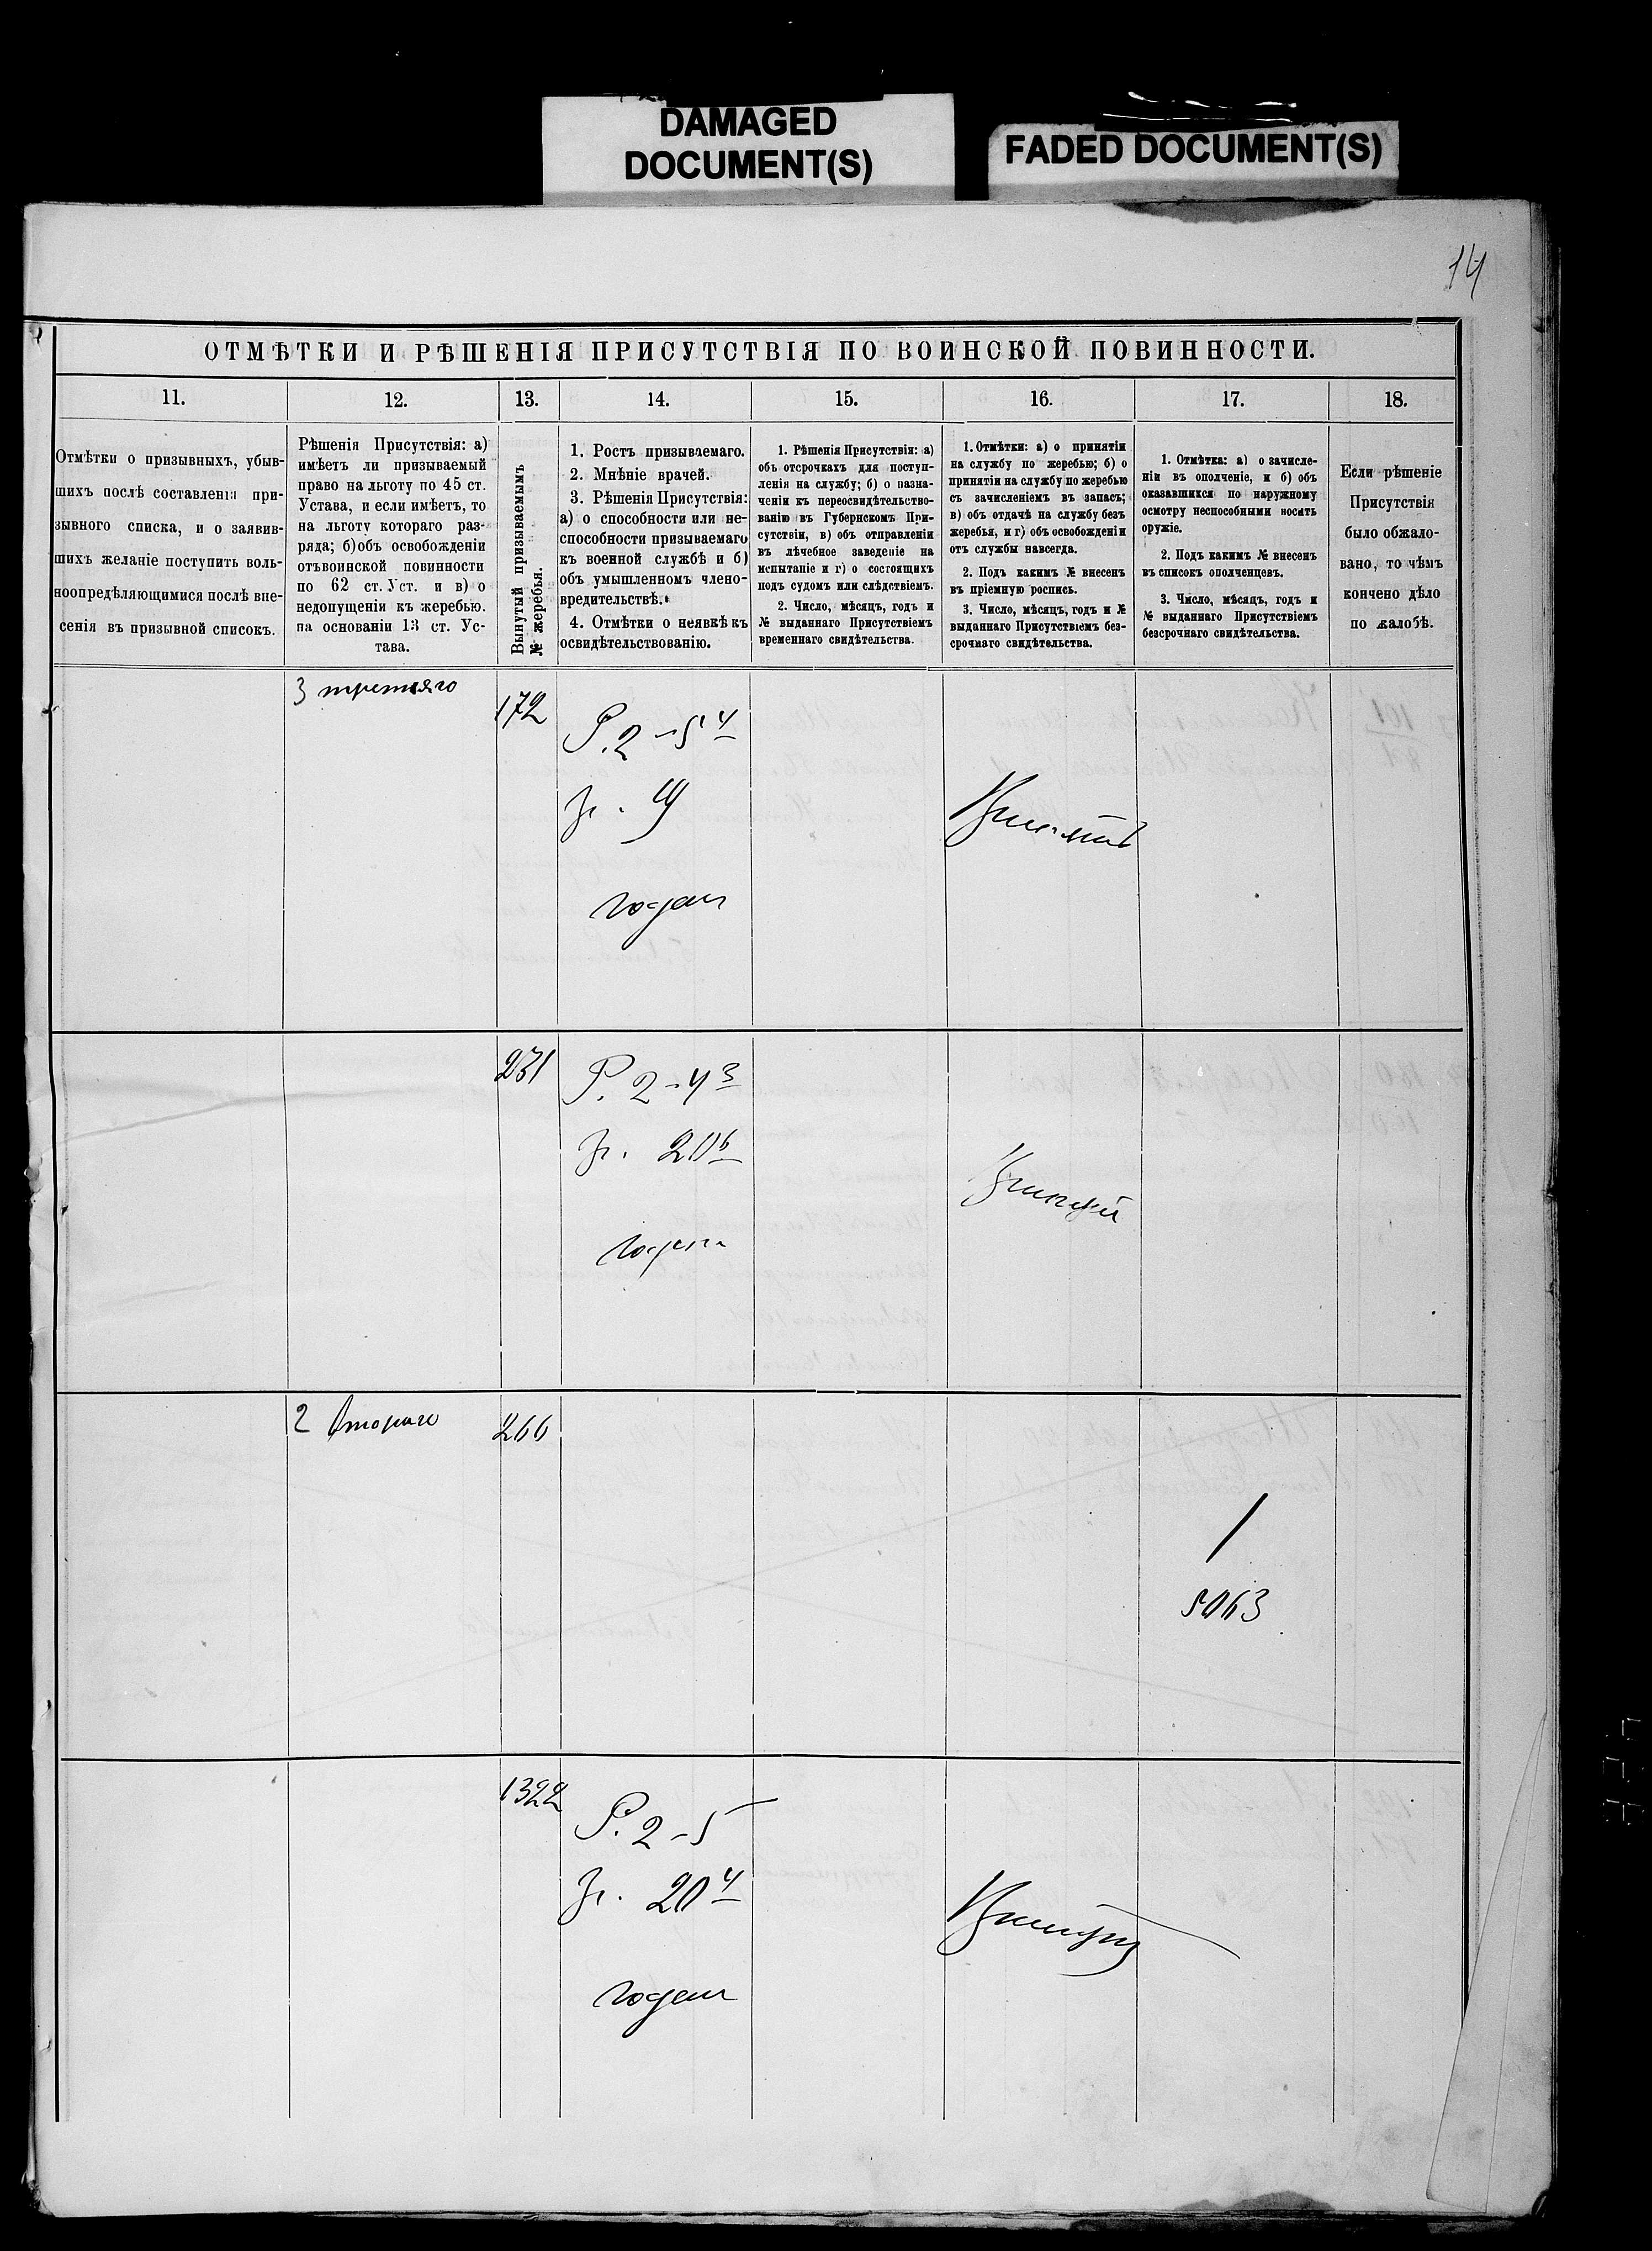 DAMAGED
DOCUMENT(S)
FADED DOCUMENT(S)
14
ОТМѢТКИ И РѢШЕНІЯ ПРИСУТСТВІЯ ПО ВОИНСКОЙ ПОВИННОСТИ.
11.
12.
13.
14.
15.
16.
17.
18.
Отмѣтки о призывныхъ, убыв-
шихъ послѣ составленія при-
зывного списка, и о заявив-
шихъ желаніе поступить воль-
ноопредѣляющимися послѣ вне-
сенія въ призывной списокъ.
Рѣшенія Присутствія: а)
имѣетъ ли призываемый
право на льготу по 45 ст.
Устава, и если имѣетъ, то
на льготу котораго раз-
ряда; б)объ освобожденіи
отъвоинской повинности
по 62 ст. Уст. и в) о
недопущеніи къ жеребью.
на основаніи 13 ст. Ус-
тава.
Вынутый призываемымъ
№ жеребья.
1. Ростъ призываемаго.
2. Мнѣніе врачей.
3. Рѣшенія Присутствія:
а) о способности или не-
способности призываемаго
къ военной службѣ и б)
объ умышленномъ члено-
вредительствѣ.
4. Отмѣтки о неявкѣ къ
освидѣтельствованію.
1. Рѣшенія Присутствія: а)
объ отсрочкахъ для поступ-
ленія на службу; б) о назна-
ченіи къ переосвидѣтельство-
ванію въ Губернскомъ При-
сутствіи, в) объ отправленіи
въ лѣчебное заведеніе на
испытаніе и г) о состоящихъ
подъ судомъ или слѣдствіемъ.
2. Число, мѣсяцъ, годъ и
№ выданнаго Присутствіемъ
временнаго свидѣтельства.
1. Отмѣтки: а) о принятіи
на службу по жеребью; б) о
принятіи на службу по жеребью
съ зачисленіемъ въ запасъ;
в) объ отдачѣ на службу безъ
жеребья, и г) объ освобожденіи
отъ службы навсегда.
2. Подъ какимъ № внесенъ
въ пріемную роспись.
3. Число, мѣсяцъ, годъ и №
выданнаго Присутствіемъ без-
срочнаго свидѣтельства.
1. Отмѣтка: а) о зачисле-
ніи въ ополченіе, и б) объ
оказавшихся по наружному
осмотру неспособными носить
оружіе.
2. Подъ какимъ № внесенъ
въ списокъ ополченцевъ.
3. Число, мѣсяцъ, годъ и
№ выданнаго Присутствіемъ
безсрочнаго свидѣтельства.
Если рѣшеніе
Присутствія
было обжало-
вано, то чѣмъ
кончено дѣло
по жалобѣ.
3 третяго
172
Р. 2-5 4
годен
231
Р. 2-4 3
20 6
годен
2 второго
266
5063
1322
Р. 2-5
20 4
годен